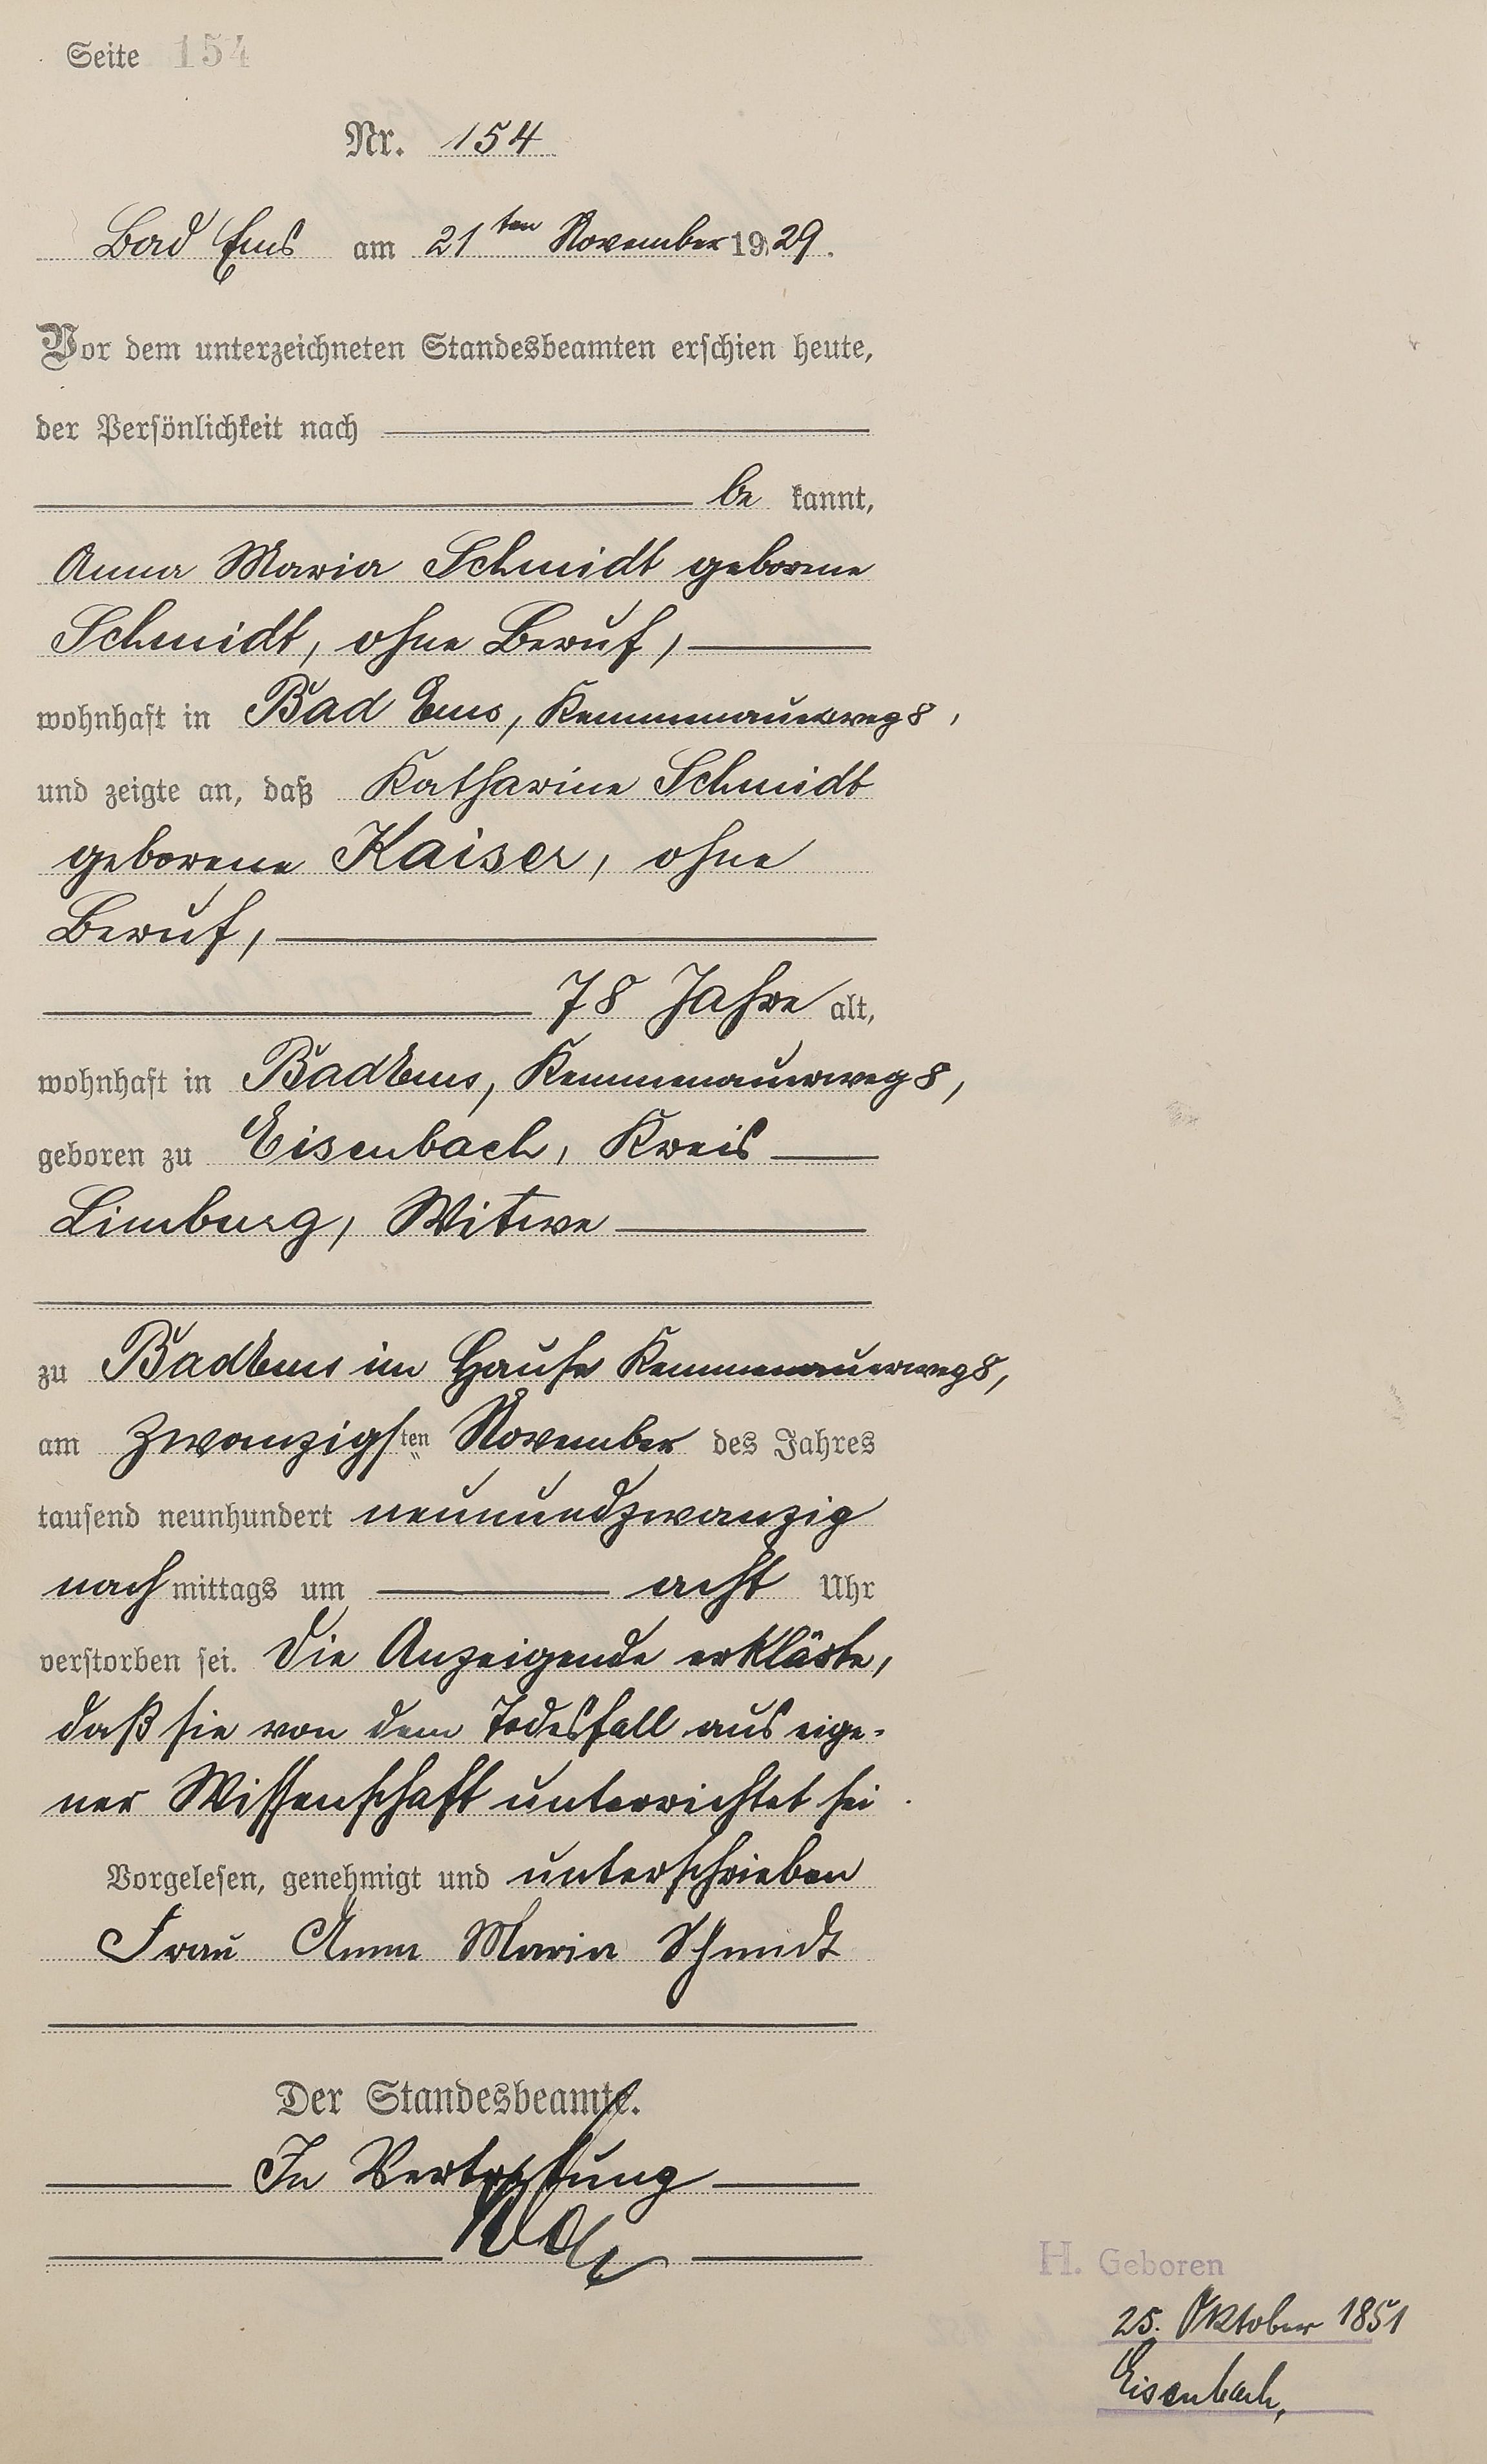 Seite 154
Nr. 154
Bad Ems am 21ten November 1929.
Vor dem unterzeichneten Standesbeamten erschien heute,
der Persönlichkeit nach
be kannt,
Anna Maria Schmidt geborene
Schmidt, ohne Beruf,
wohnhaft in Bad Ems, Kemmenauerweg 8,
und zeigte an, daß Katharine Schmidt
geborene Kaiser, ohne
Beruf,
78 Jahre alt,
wohnhaft in Bad Ems, Kemmenauerweg 8,
geboren zu Eisenbach, Kreis
Limburg, Witwe
zu Bad Ems im Hause Kemmenauerweg 8,
am zwanzigsten November des Jahres
tausend neunhundert neunundzwanzig
nachmittags um acht Uhr
verstorben sei. Die Anzeigende erklärte,
daß sie von dem Todesfall aus eige-
ner Wissenschaft unterrichtet sei.
Vorgelesen, genehmigt und unterschrieben
Frau Anna Maria Schmidt
Der Standesbeamte.
In Vertretung
H. Geboren
25. Oktober 1851
Eisenbach,